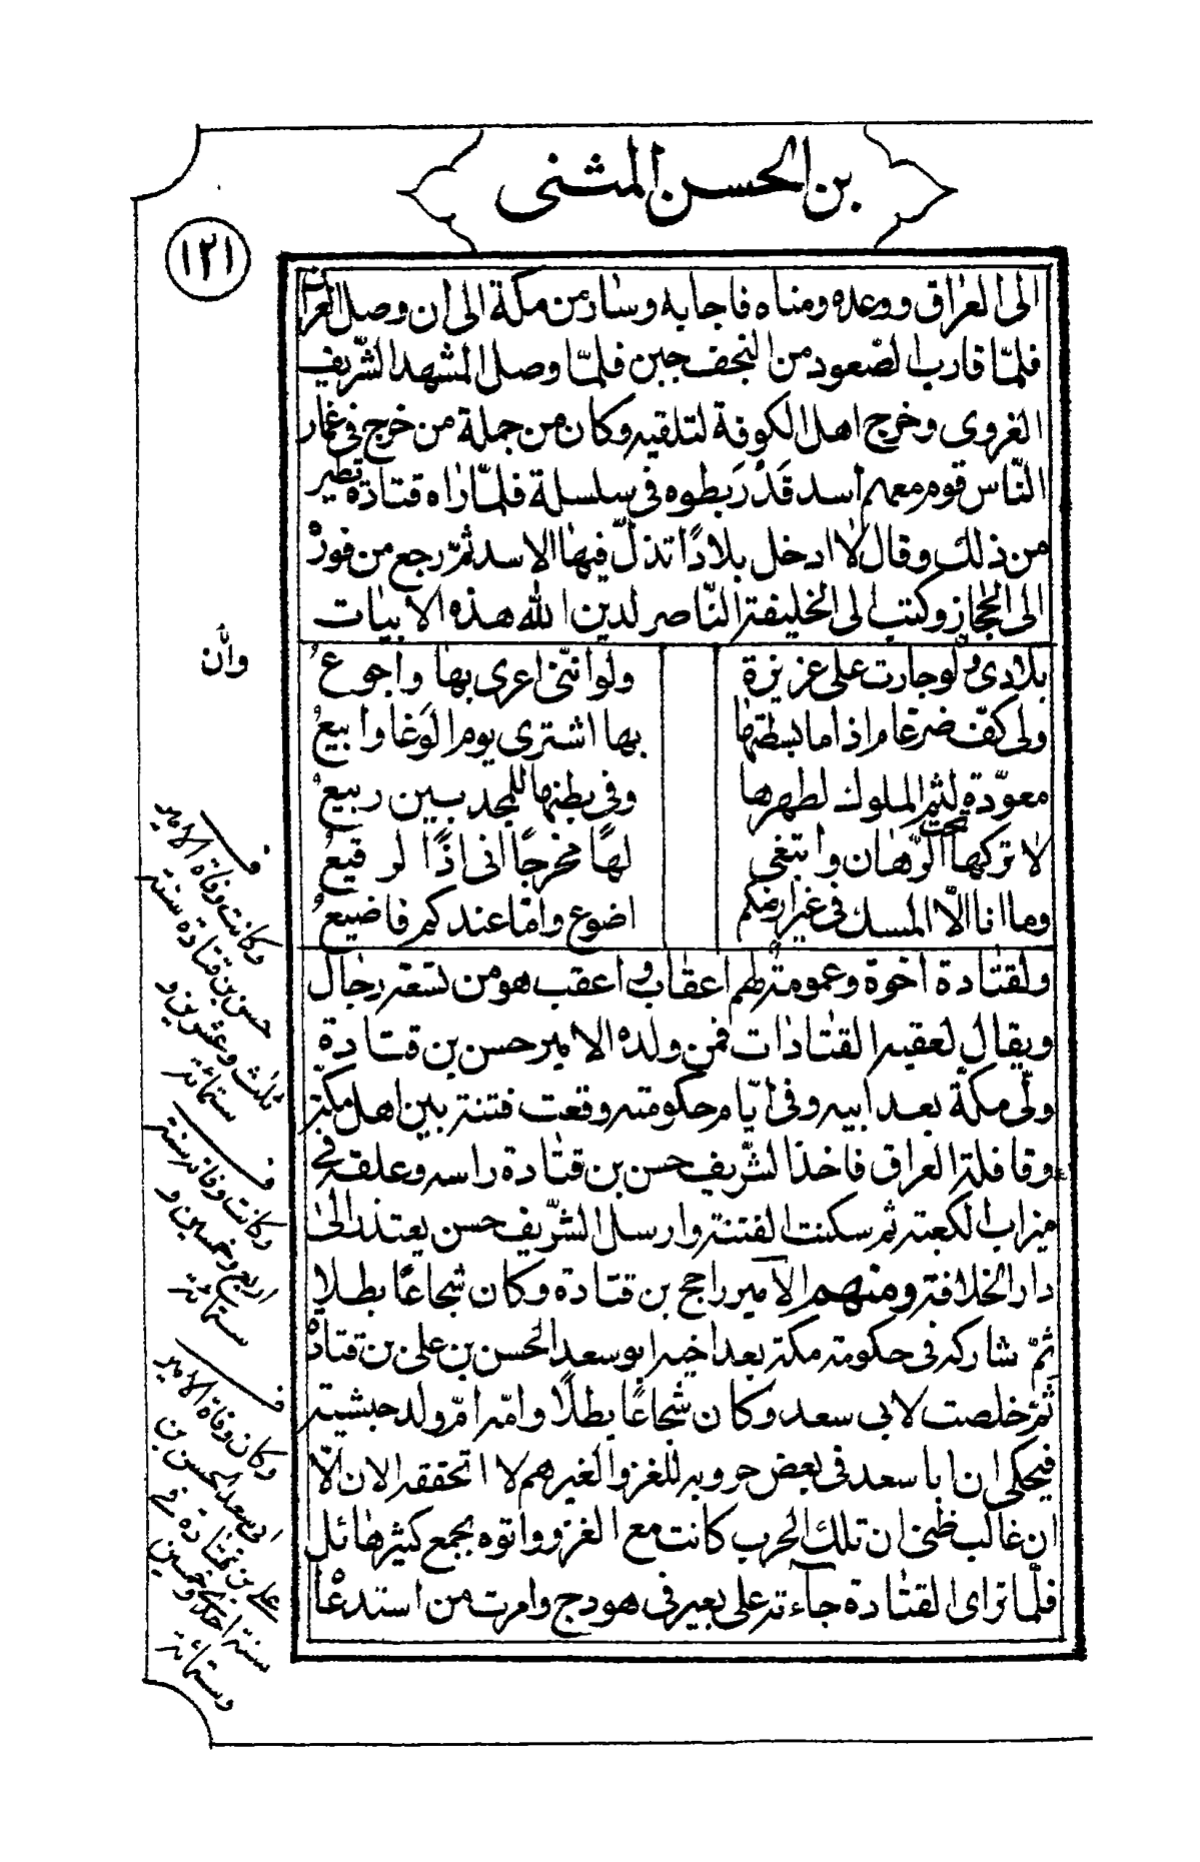 بن الحسن المثنى
١٢١
الى العراق ووعده ومناه فاجابه وسار من مكة الى ان وصل العراق
فلمّا قارب الصّعود من النجف جبن فلمّا وصل المشهد الشّريف
الغروى وخرج اهل الكوفة لتلقيه وكان من جملة من خرج فى غمار
النّاس قوم معهم اسد قَدْ رَبطوه فى سلسلة فلمّا راه قتادة تطير
من ذلك وقال لا ادخل بلادًا تذلّ فيها الاسد ثمّ رجع من فوره
الى الحجاز وكتب الى الخليفة النّاصر لدين الله هذه الابيات
بلادى ولو جارت على عزيزة ولو انّنى اعرى بها واجوعُ
ولى كفّ ضرغام اذا ما بسطتها بها اشترى يوم الوَغا وابيعُ
معوّدة لثم الملوك لظهرها وفى بطنها للمجدبين ربيعُ
ءَاتركها تحت الرّهان وابتغى لها مخرجًا انى اذًا لرقيعُ
وما انا الّا المسك فى غير ارضكم اضوع وامّا عندكم فاضيعُ
ولقتادة اخوة وعمومة لهم اعقاب واعقب هو من تسعة رجال
ويقال لعقبه القتادات فمن ولده الامير حسن بن قتادة
ولّى مكة بعد ابيه وفى ايّام حكومته وقعت فتنة بين اهل مكّة
وقافلة العراق فاخذ الشّريف حسن بن قتادة راسه وعلقه فى
ميزاب الكعبة ثم سكنت الفتنة وارسل الشّريف حسن يعتذر الى
دار الخلافة ومنهم الامير راجح بن قتادة وكان شجاعًا بطلا
ثمّ شاركه فى حكومة مكة بعد اخيه ابو سعد الحسن بن على بن قتادة
ثمّ خلصت لابى سعد وكان شجاعًا بطلًا وامّه امّ ولد حبشية
فيحكى ان ابا سعد فى بعض حروبه للغز والغيرهم لا اتحققه الان الّا
ان غالب ظنى ان تلك الحرب كانت مع الغز وواتوه بجمع كثير هائل
فلمّا تراى القتادة جاءته على بعير فى هودج وامرت من استدعا
وانّ
ف
وكانت وفاة الامير
حسن بن قتادة سنة
ثلث وعشرين و
ستمائة
ف
وكانت وفاته سنة
اربع وخمسين و
ستمائة
ف
وكان وفاة الامير
ابى سعد الحسن بن
على بن قتادة فى
سنة احدى وخمسين
وستمائة